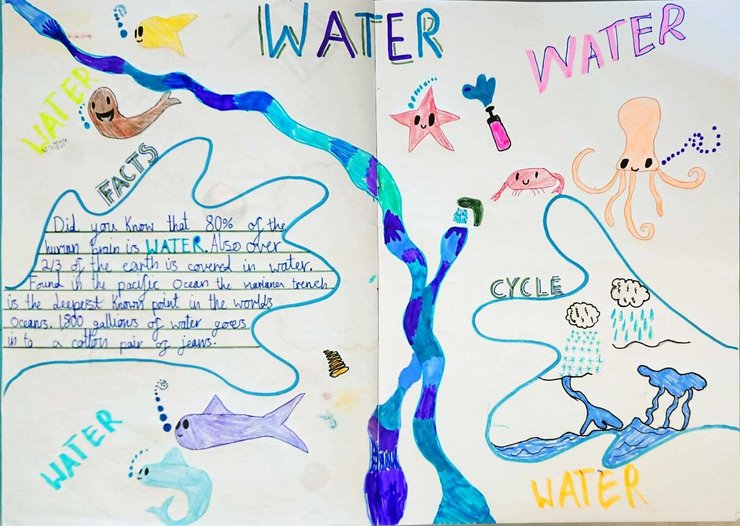 WATER
WATER
WATER
FACTS
Did you know that 80% of the
human brain is WATER. Also over
2/3 of the earth is covered in water.
Found in the pacific Ocean the marianer trench
is the deepest known point in the worlds
Oceans. 1,800 gallions of water goes
in to a cotton pair of jeans.
CYCLE
WATER
WATER